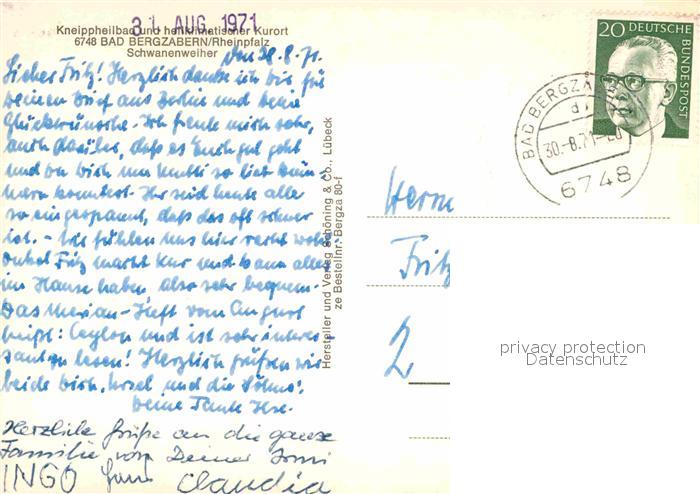 31. AUG. 1971
Kneippheilbad und heilklimatischer Kurort
6748 BAD BERGZABERN/Rheinpfalz
Schwanenweiher
Den 28.8.71.
Lieber Fritz! Herzlich danke ich dir für
deinen Brief aus Berlin und deine
Glückwünsche. Ich freute mich sehr,
auch darüber, daß es Euch gut geht
und du dich um Mutti so lieb küm-
mern konntest. Ihr seid heute alle
so eingespannt, daß das oft schwer
ist. - Wir fühlen uns hier recht wohl
Onkel Fritz macht Kur und kann alles
im Hause haben, also sehr bequem.
Das Merian-Heft vom August
heißt: Ceylon und ist sehr interes-
sant zu lesen! Herzlich grüßen wir
beide dich, Ursel und die Söhne!
Deine Tante Ilse.
Herzliche Grüße an die ganze
Familie von Deiner
INGO Claudia
Hersteller und Verlag Schöning & Co., Lübeck
ze Bestellnr. Bergza 80-f
20 DEUTSCHE
BUNDESPOST
BAD BERGZA
30.-8.71-
6748
Herrn
Fritz
2
privacy protection
Datenschutz